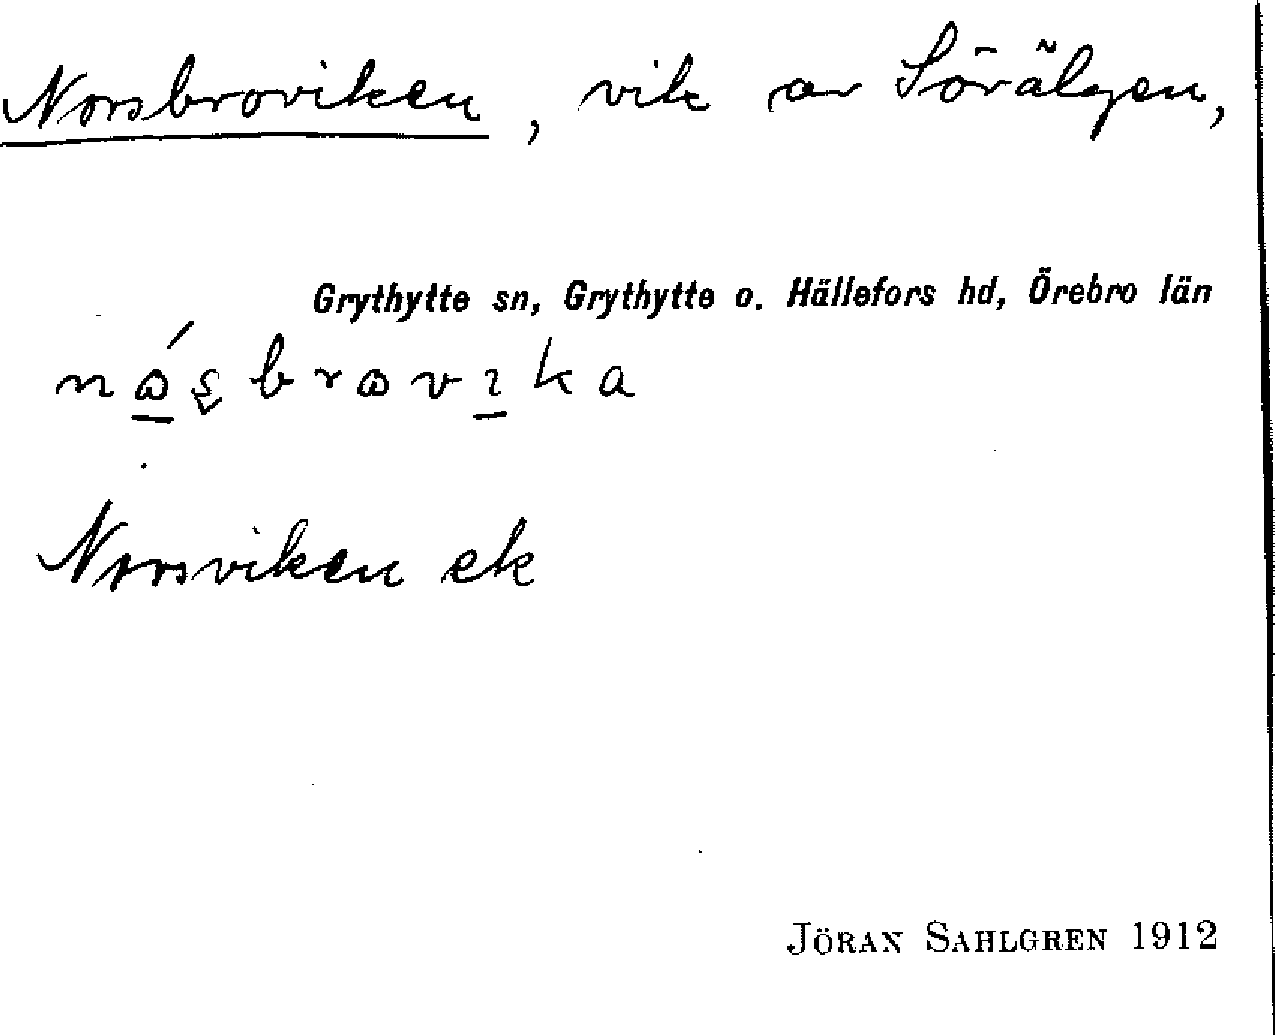 Norsbroviken, vik av Sörälgen,
Grythytte sn, Grythytte o. Hällefors hd, Örebro län
nɷ́s̬brɷvıka
Norsviken ek
JÖRAN SAHLGREN 1912